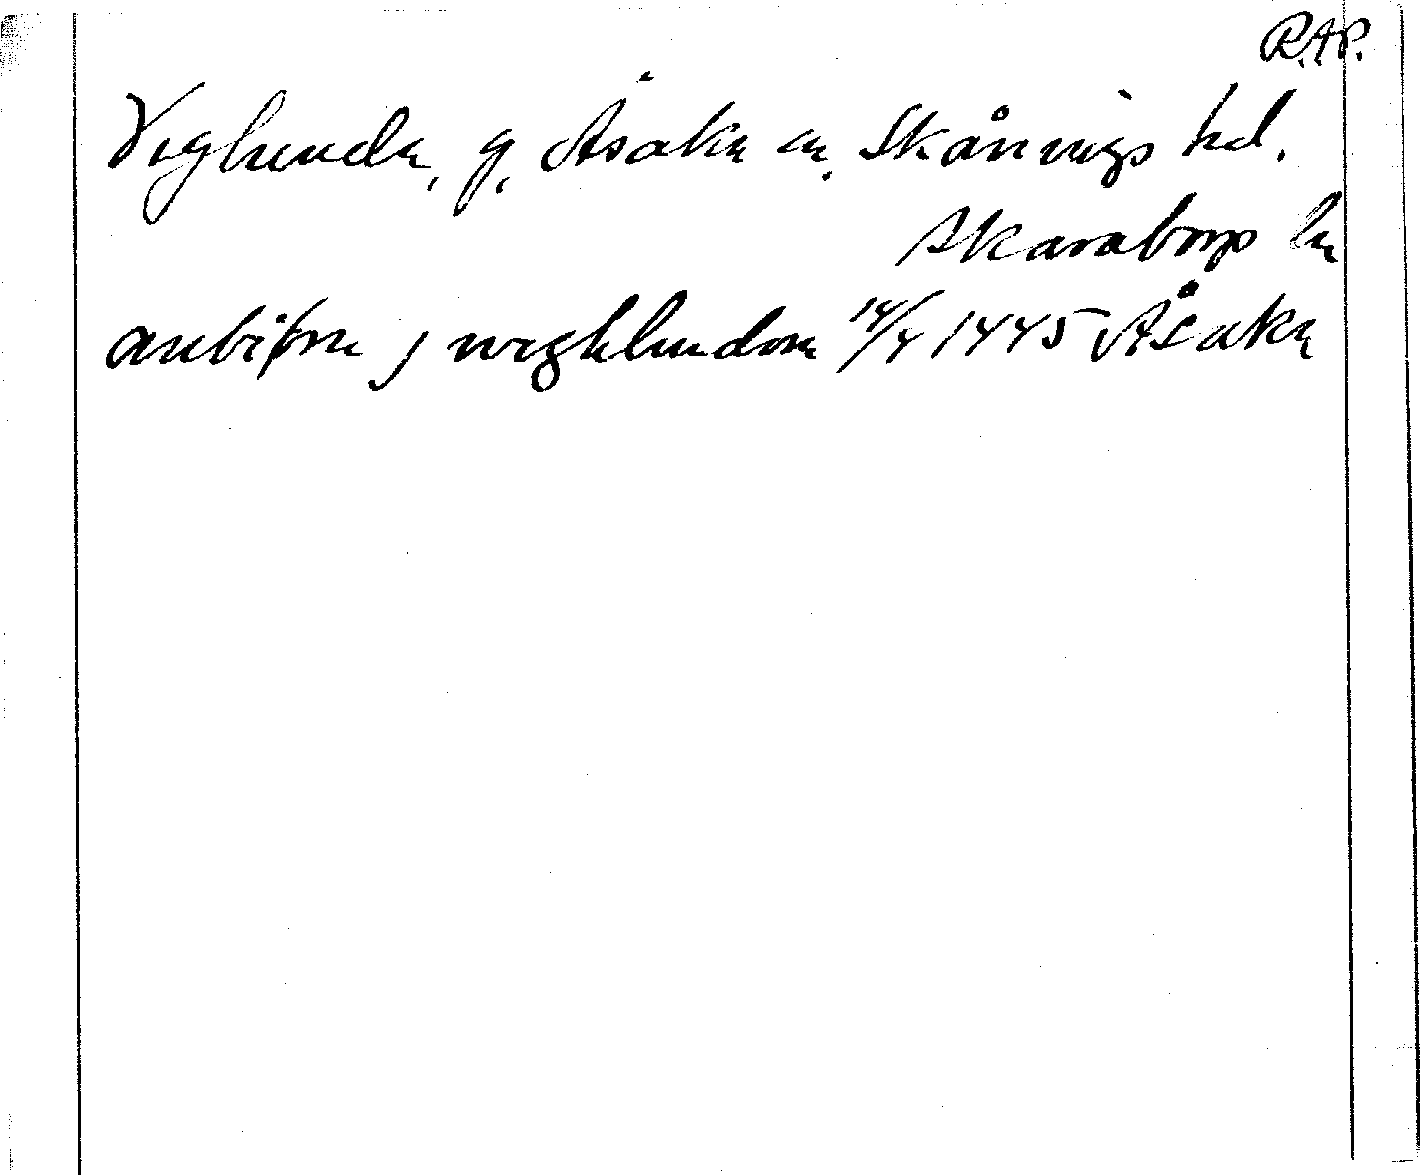 R.A.P.
Veglunda, g, Åsaka sn. Skånings hd.
Skaraborgs län
anbiørn j weghlundom 14/4 1445 Åsaka